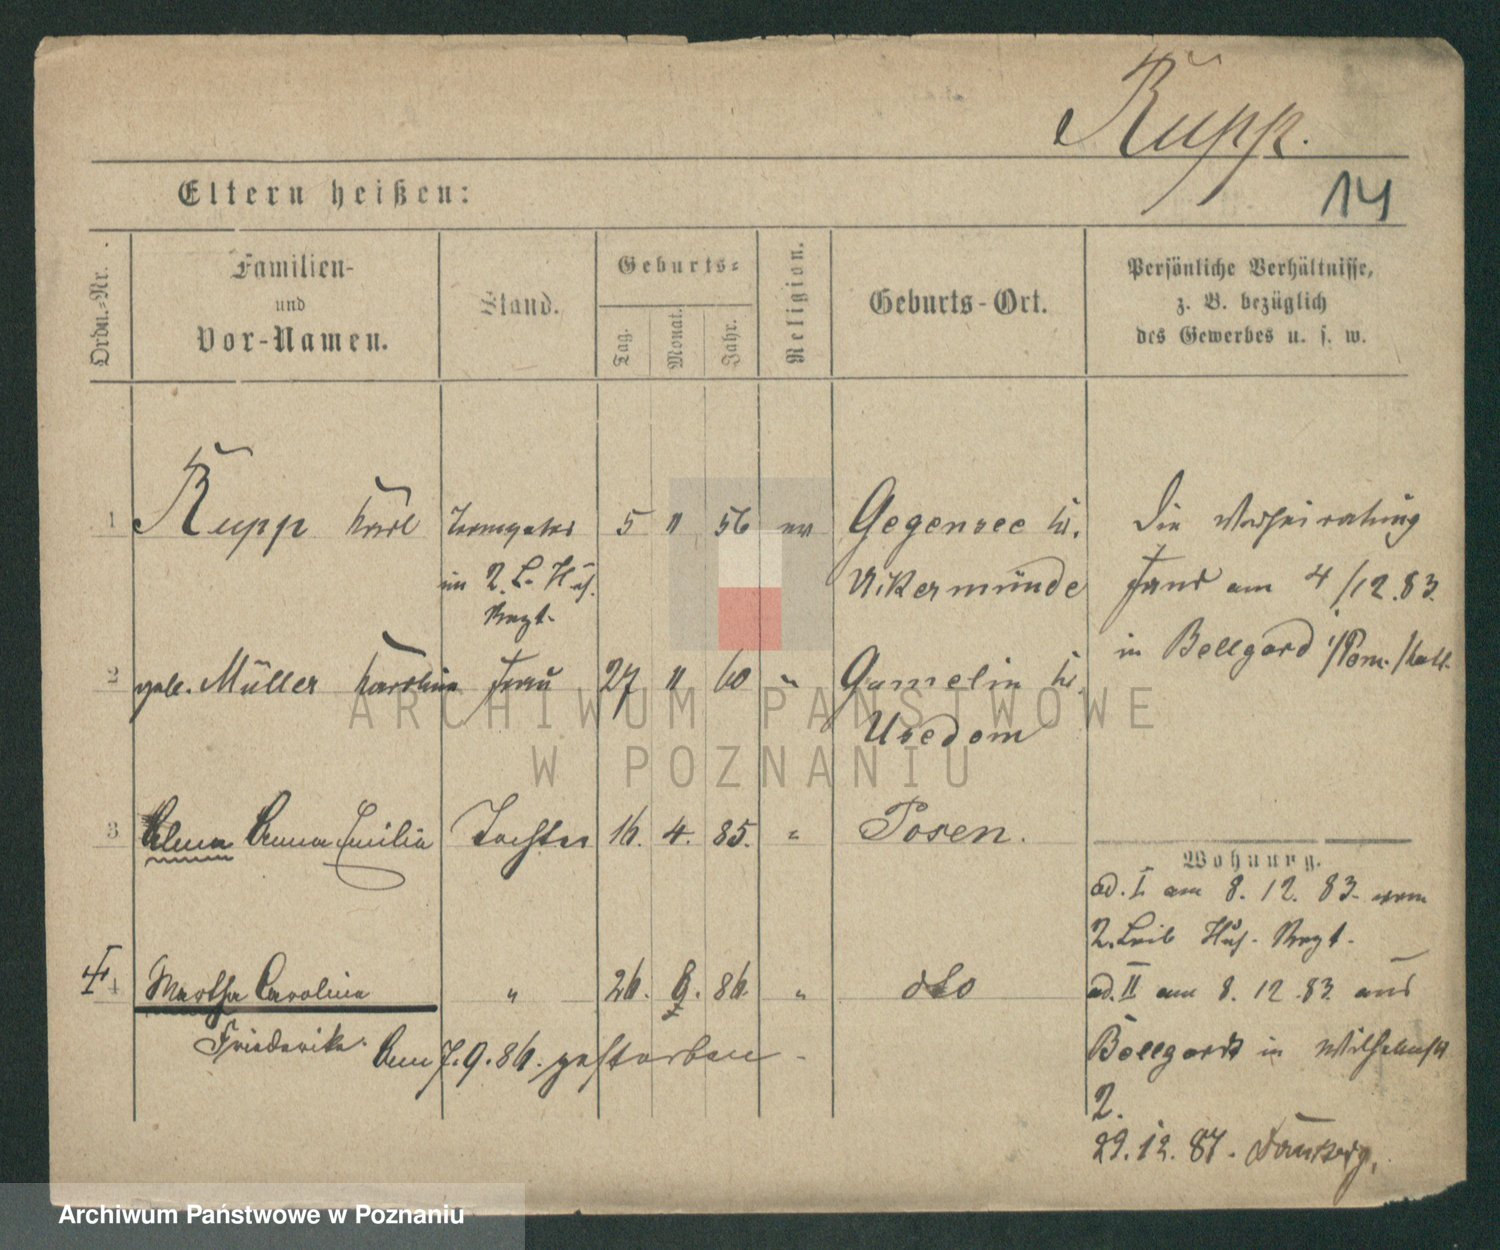 Rupp.
Eltern heißen:
14
Ordn.-Nr.
Familien-
und
Vor-Namen.
Stand.
Geburts-
Tag.
Monat.
Jahr.
Religion.
Geburts-Ort.
Persönliche Verhältnisse,
z. B. bezüglich
des Gewerbes u. s. w.
1 Rupp Karl Trompeter 5 " 56 ev Gegensee Kr. Die Verheiratung
im 2. L. Hus. Ukermünde fand am 4/12.83.
Regt.
in Bellgard i/Pom. statt
2 geb. Müller Karoline Frau 27 " 60 " Gamelin Kr.
Usedom
3 Alma Anna Emilia Tochter 16. 4. 85. " Posen.
Wohnung.
ad. I am 8. 12. 83. vom
2. Leib Hus. Regt.
4 Martha Carolina " 26. 8. 86. " dto ad. II am 8. 12. 83. aus
Friederike. Am 7. 9. 86. gestorben - Bellgard in Wilhelmst
2.
29. 12. 87.
ARCHIWUM PAŃSTWOWE
W POZNANIU
Archiwum Państwowe w Poznaniu